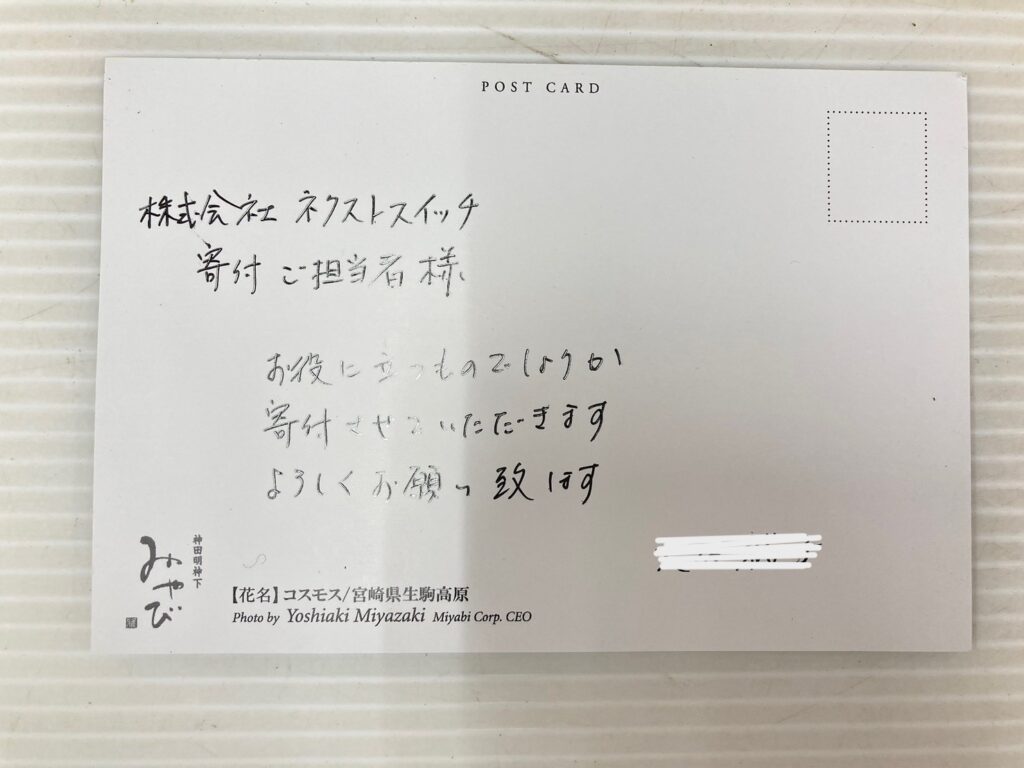 POST CARD
株式会社 ネクストスイッチ
寄付 ご担当者 様
お役に立つものでしょうか
寄付させていただきます
よろしくお願い致します
神田明神下
みやび
【花名】コスモス/宮崎県生駒高原
Photo by Yoshiaki Miyazaki Miyabi Corp. CEO